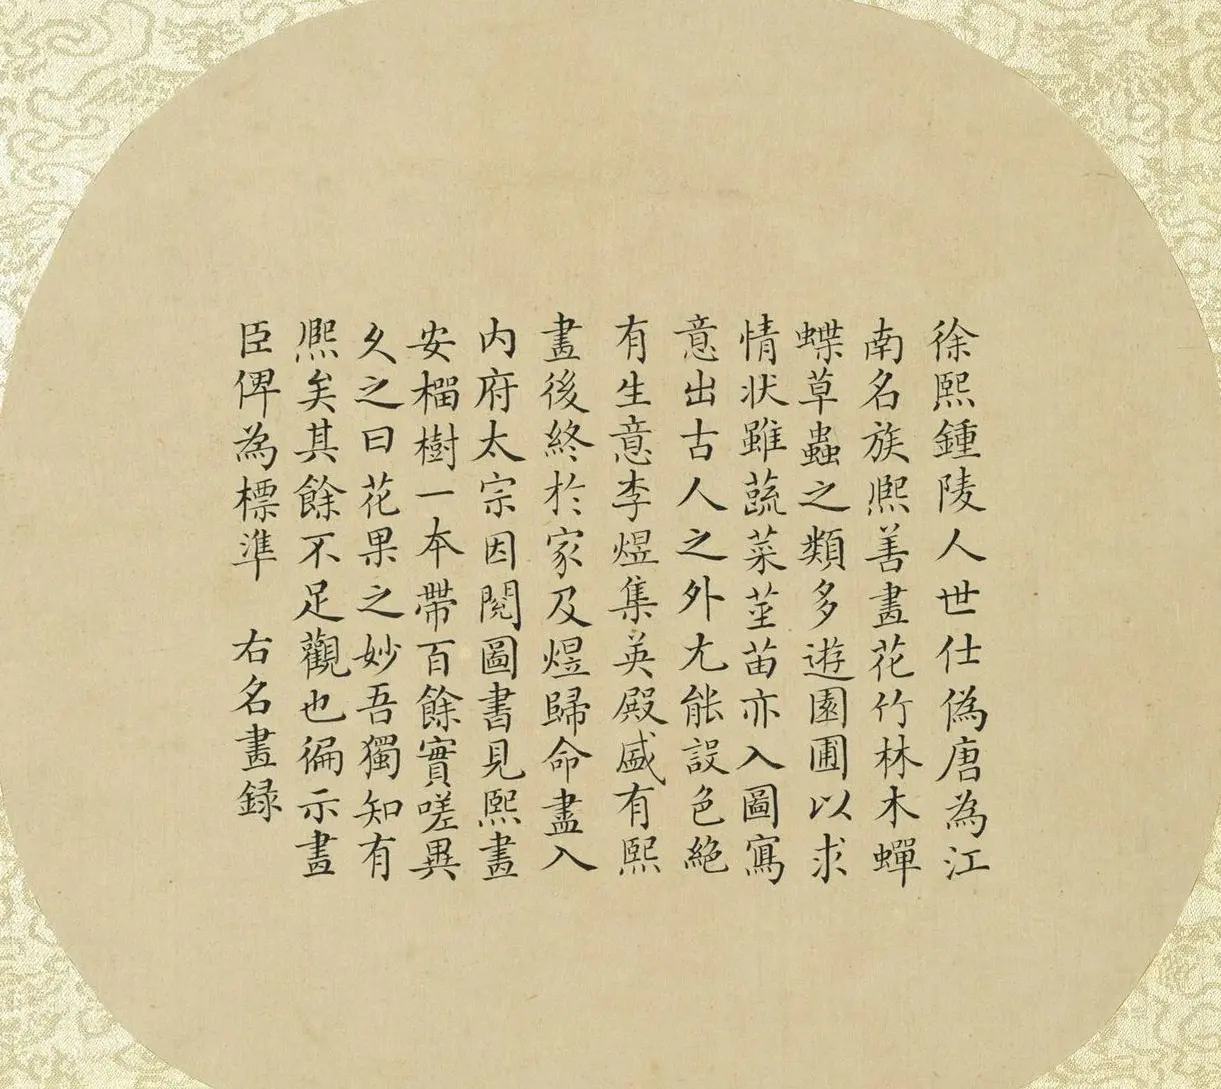 徐熙鍾陵人世仕偽唐為江
南名族熙善畫花竹林木蟬
蝶草蟲之類多遊園圃以求
情状雖蔬菜莖苗亦入圖寫
意出古人之外尤能設色絕
有生意李煜集英殿盛有熙
畫後終於家及煜歸命盡入
内府太宗因閱圖書見熙畫
安榴樹一本帶百餘實嗟異
久之曰花果之妙吾獨知有
熙矣其餘不足觀也徧示畫
臣俾為標準 右名畫録